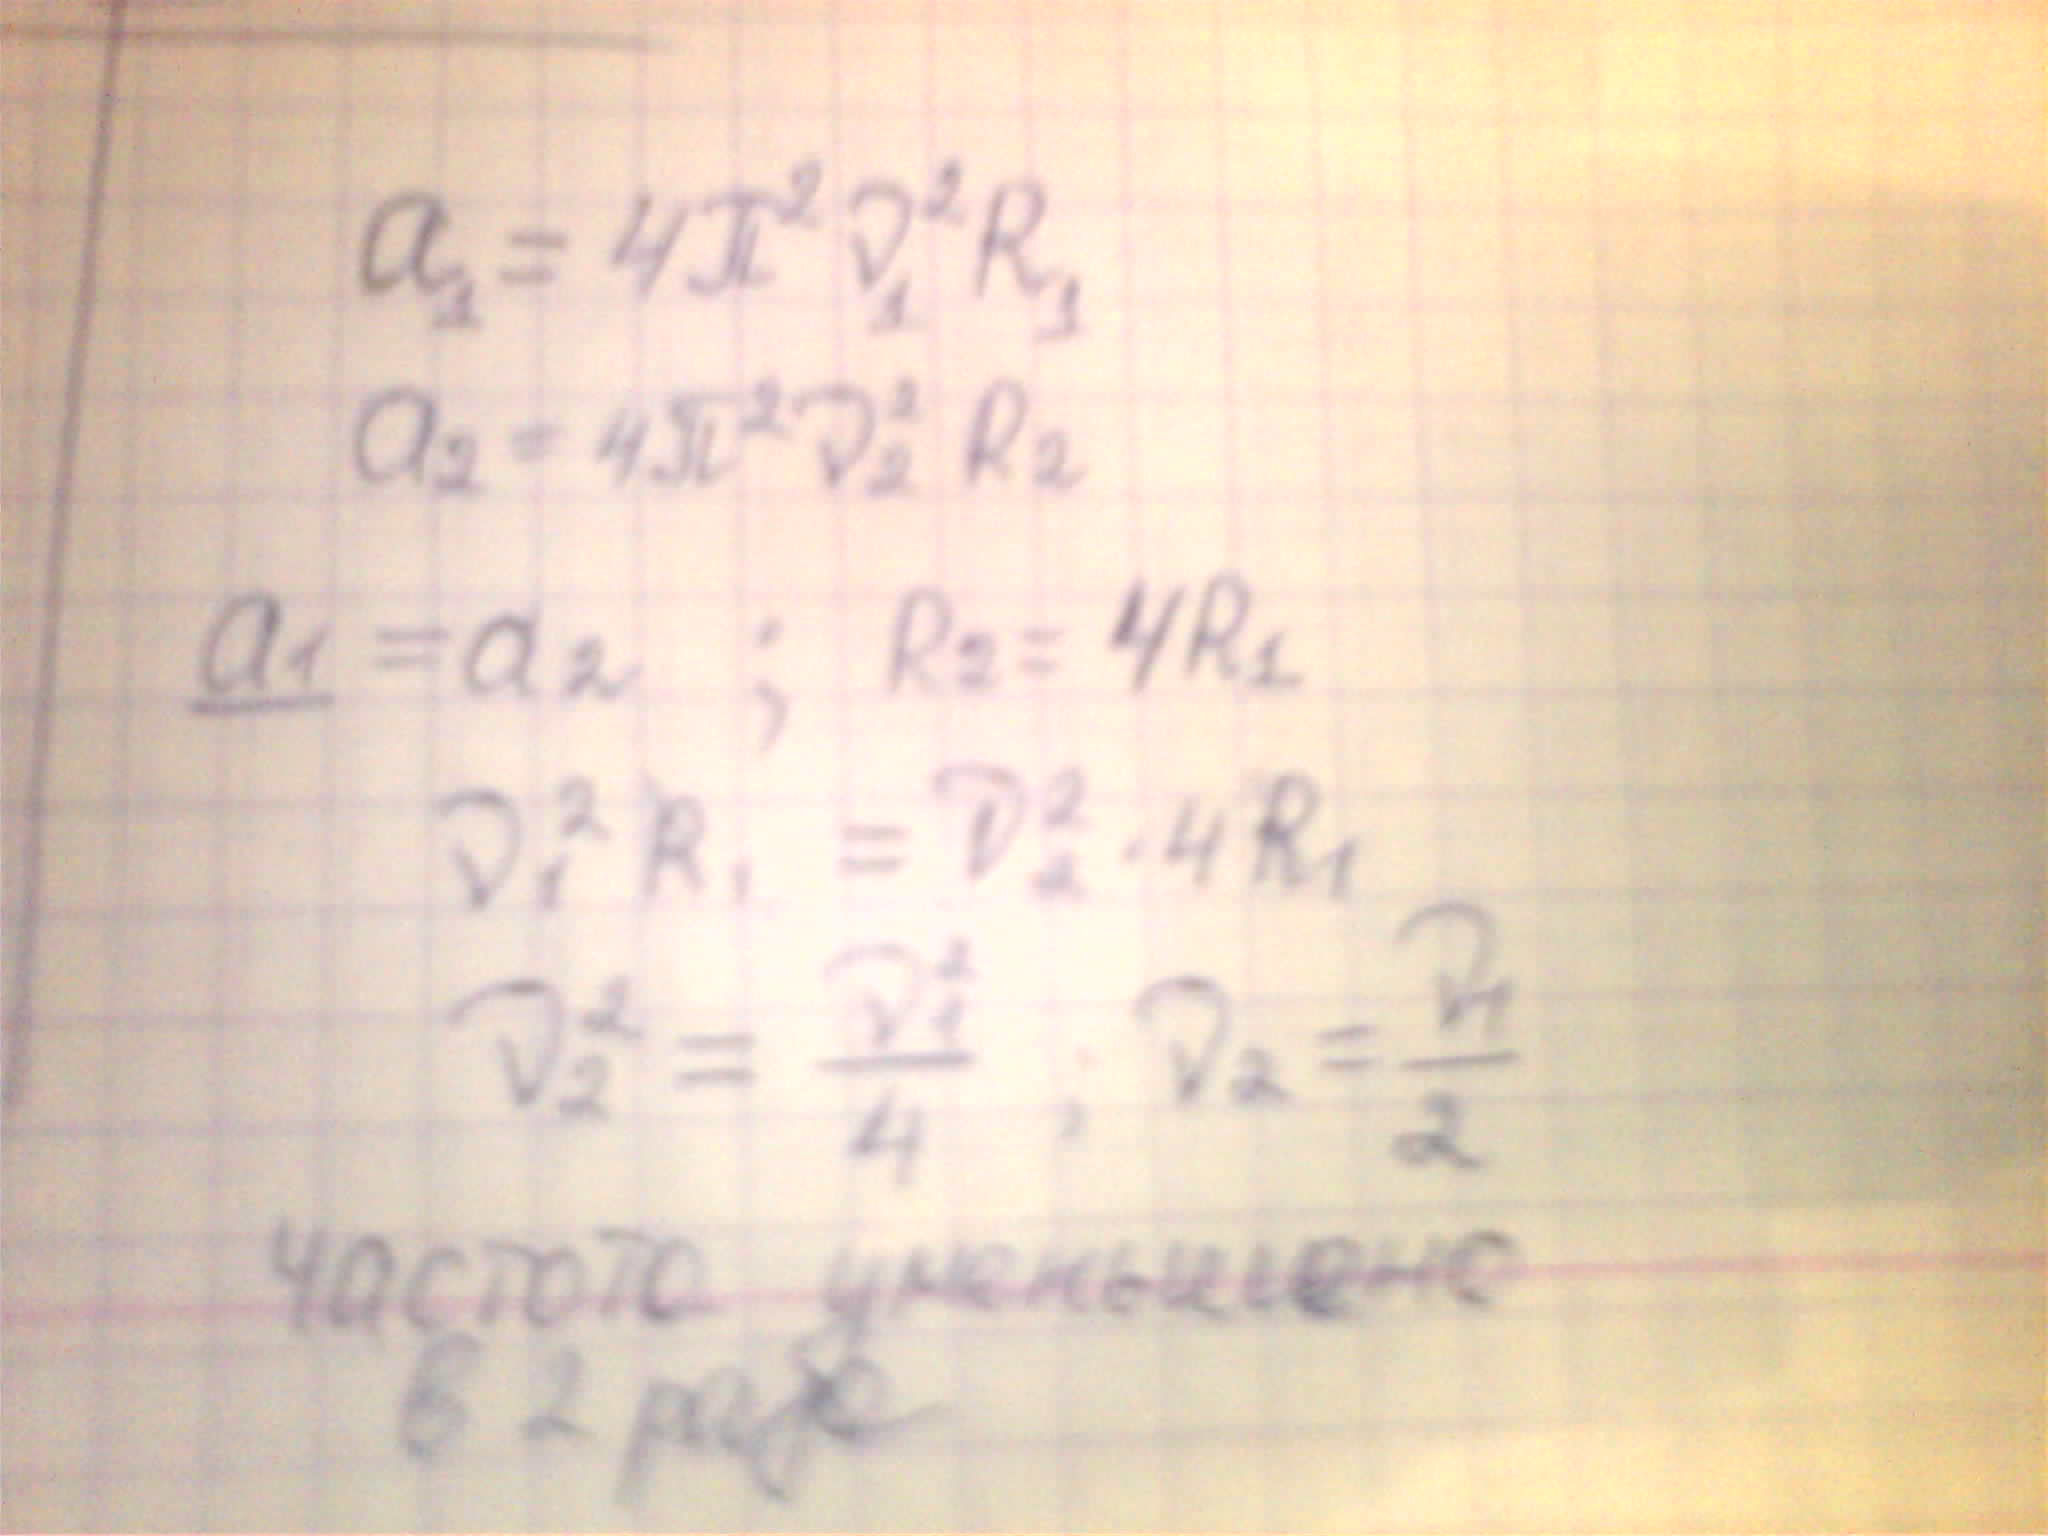 a₁ = 4π²ν₁²R₁
a₂ = 4π²ν₂²R₂
a₁ = a₂ ; R₂ = 4R₁
ν₁²R₁ = ν₂² · 4R₁
ν₂² = ν₁²/4 ; ν₂ = ν₁/2
частота уменьшена
в 2 раза